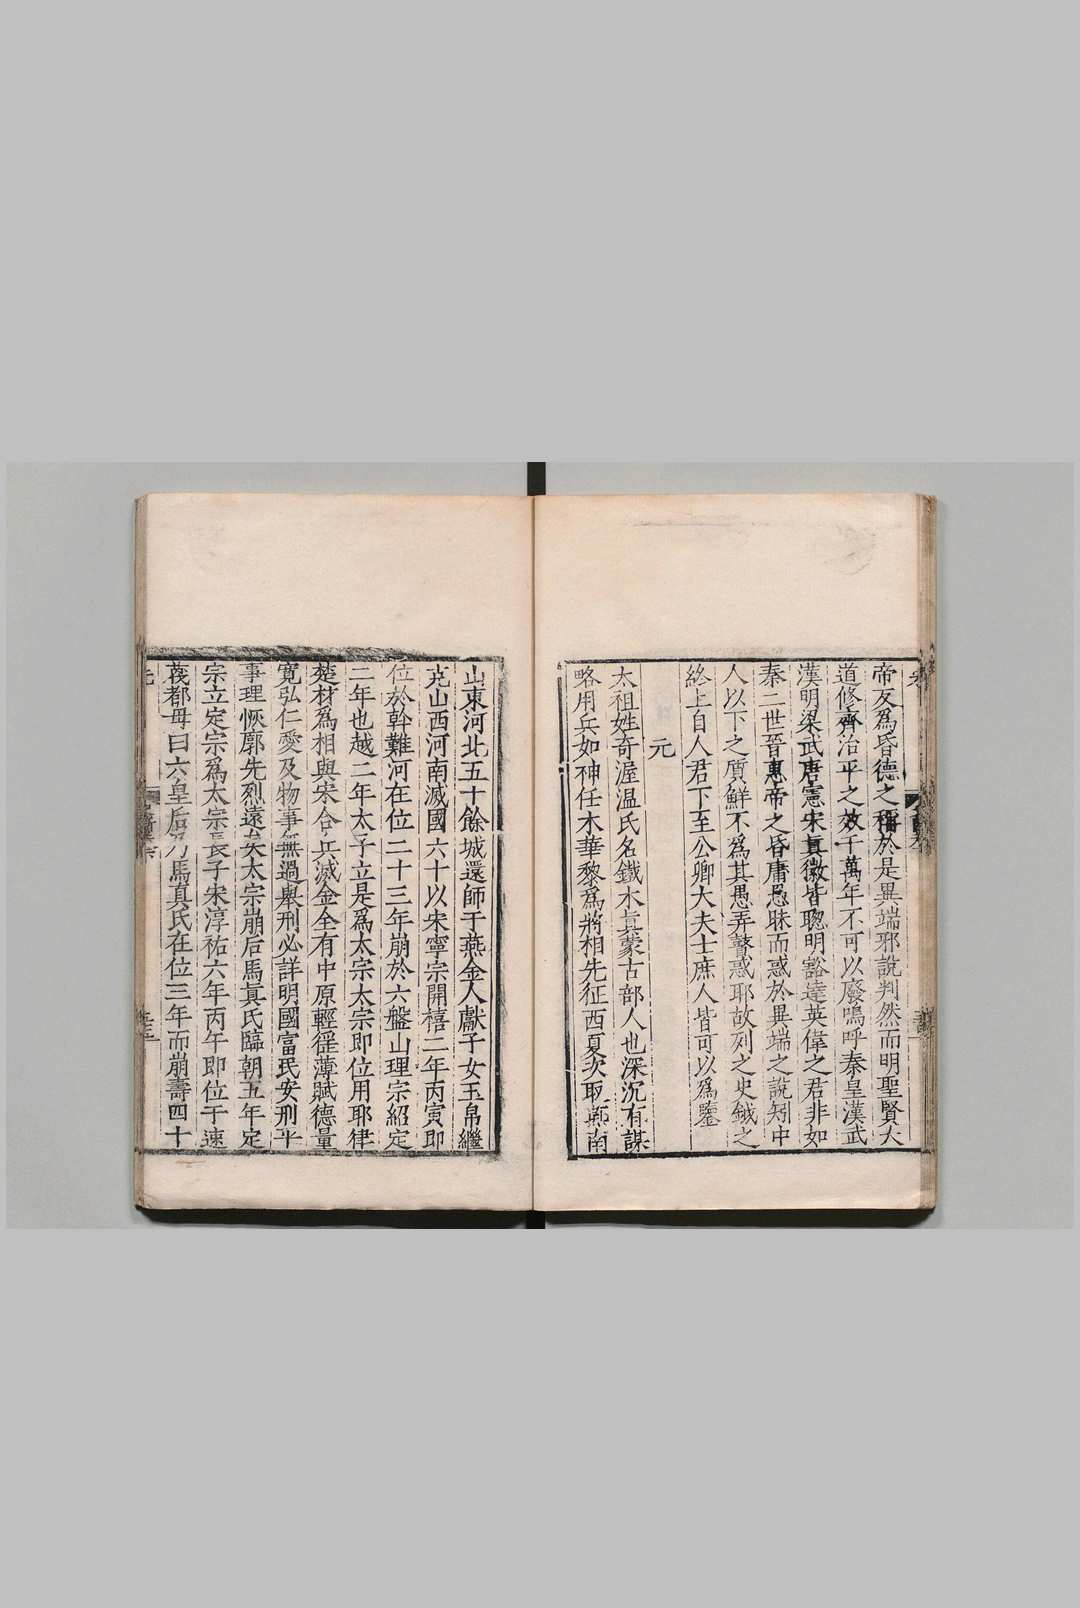 帝反爲昏德之稱於是異端邪說判然而明聖賢大
道修齊治平之效千萬年不可以廢嗚呼秦皇漢武
漢明梁武唐憲宋眞徽皆聰明豁達英偉之君非如
秦二世晉惠帝之昏庸愚昧而惑於異端之說矧中
人以下之質鮮不爲其愚弄瞽惑耶故列之史鉞之
終上自人君下至公卿大夫士庶人皆可以爲鑒
元
太祖姓奇渥温氏名鐵木眞蒙古部人也深沉有謀
略用兵如神任木華黎爲將相先征西夏次取燕南
山東河北五十餘城還師于燕金人獻子女玉帛繼
克山西河南滅國六十以宋寧宗開禧二年丙寅即
位於斡難河在位二十三年崩於六盤山理宗紹定
二年也越二年太子立是爲太宗太宗即位用耶律
楚材爲相與宋合兵滅金全有中原輕徭薄賦德量
寬弘仁愛及物事無過舉刑必詳明國富民安刑平
事理恢廓先烈遠矣太宗崩后馬眞氏臨朝五年定
宗立定宗爲太宗長子宋淳祐六年丙午即位于速
蔑都母曰六皇后乃馬真氏在位三年而崩壽四十
元